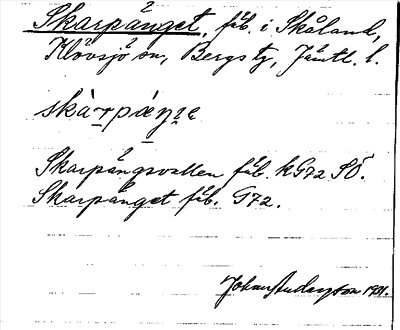 Skarpänget, fäb. i Skåland,
Klövsjö sn, Bergs tg, Jämtl. l.
skàrpäŋe
Skarpängsvallen fäb. kG72 SÖ.
Skarpänget fäb. G72.
Johan Anderzon 1931.